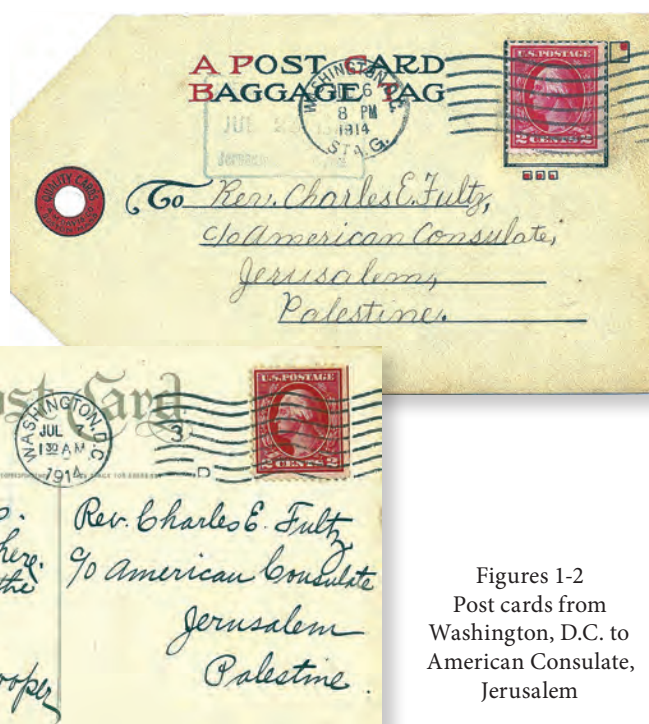 A POST CARD
BAGGAGE TAG
WASHINGTON, D.C.
6
8 PM
1914
STA. G.
JUL 2
U.S. POSTAGE
2 CENTS 2
QUALITY CARDS
To Rev. Charles E. Fultz,
c/o American Consulate,
Jerusalem,
Palestine.
Post Card
WASHINGTON, D.C.
JUL 7
1 30 AM
1914
3
D
U.S. POSTAGE
2 CENTS 2
here.
the
ooper
Rev. Charles E. Fultz
c/o American Consulate
Jerusalem
Palestine.
Figures 1-2
Post cards from
Washington, D.C. to
American Consulate,
Jerusalem